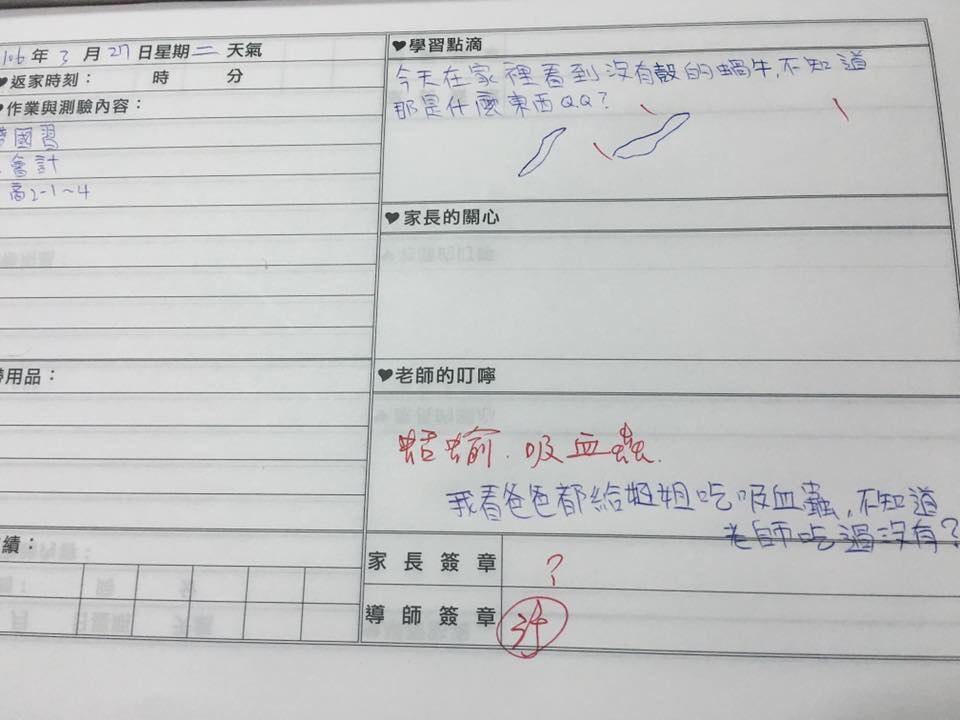 106年3月27日星期二 天氣
♥返家時刻： 時 分
♥作業與測驗內容：
國習
會計
高2-1~4
用品：
績：
♥學習點滴
今天在家裡看到沒有殼的蝸牛,不知道
那是什麼東西QQ?
♥家長的關心
♥老師的叮嚀
蛞蝓.吸血蟲.
我看爸爸都給姐姐吃吸血蟲,不知道
老師吃過沒有?
家長簽章 ?
導師簽章 許